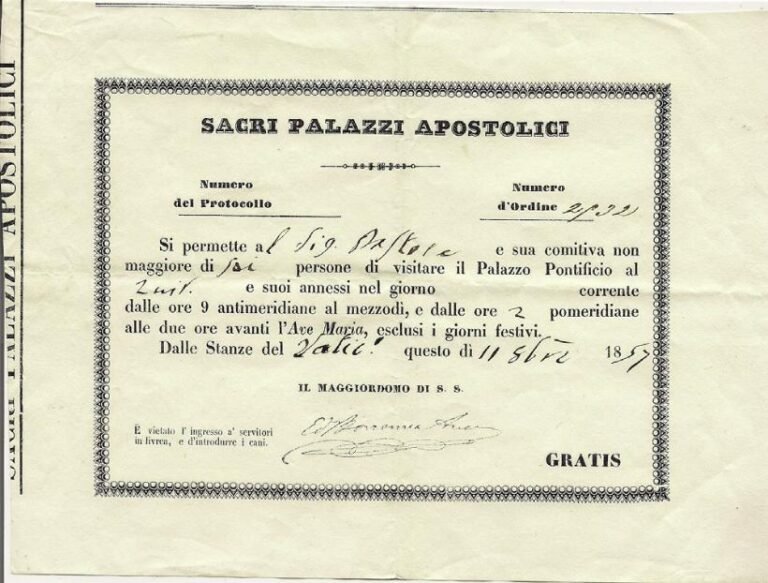 SACRI PALAZZI APOSTOLICI
SACRI PALAZZI APOSTOLICI
Numero
del Protocollo
Numero
d'Ordine 2932
Si permette al Sig. e sua comitiva non
maggiore di sei persone di visitare il Palazzo Pontificio al
e suoi annessi nel giorno corrente
dalle ore 9 antimeridiane al mezzodì, e dalle ore 2 pomeridiane
alle due ore avanti l'Ave Maria, esclusi i giorni festivi.
Dalle Stanze del Vatic. questo dì 11 8bre 1857
IL MAGGIORDOMO DI S. S.
È vietato l'ingresso a' servitori
in livrea, e d'introdurre i cani.
Borromeo
GRATIS